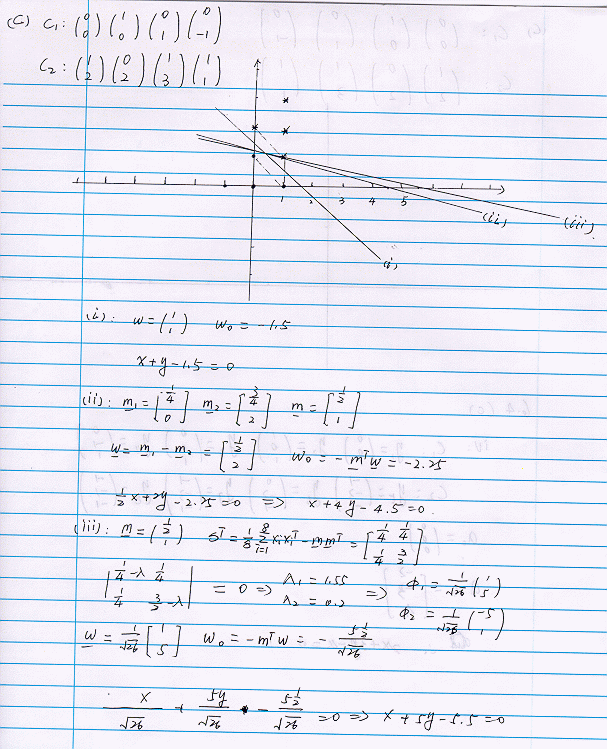 (C) C₁: (0 0) (1 0) (0 1) (0 -1)
C₂: (1 2) (0 2) (1 3) (1 1)
1 2 3 4 5
(i) (ii) (iii)
(i): w = (1 1) w₀ = -1.5
x+y-1.5=0
(ii): m₁ = [1/4 0] m₂ = [3/4 2] m = [1/2 1]
w = m₁ - m₂ = [1/2 2] w₀ = -mᵀw = -2.25
1/2x+2y-2.25=0 ⇒ x+4y-4.5=0.
(iii): m = (1/2 1) Sᵀ = 1/8 Σ_{i=1}^{8} xᵢxᵢᵀ - mmᵀ = [1/4 1/4 1/4 3/2]
|1/4-λ 1/4 1/4 3/2-λ| = 0 ⇒ λ₁ = 1.55 ⇒ φ₁ = 1/√26 (1 5)
λ₂ = 0.2 φ₂ = 1/√26 (-5 1)
w = 1/√26 [1 5] w₀ = -mᵀw = - 5 1/2/√26
x/√26 + 5y/√26 - 5 1/2/√26 = 0 ⇒ x+5y-5.5=0